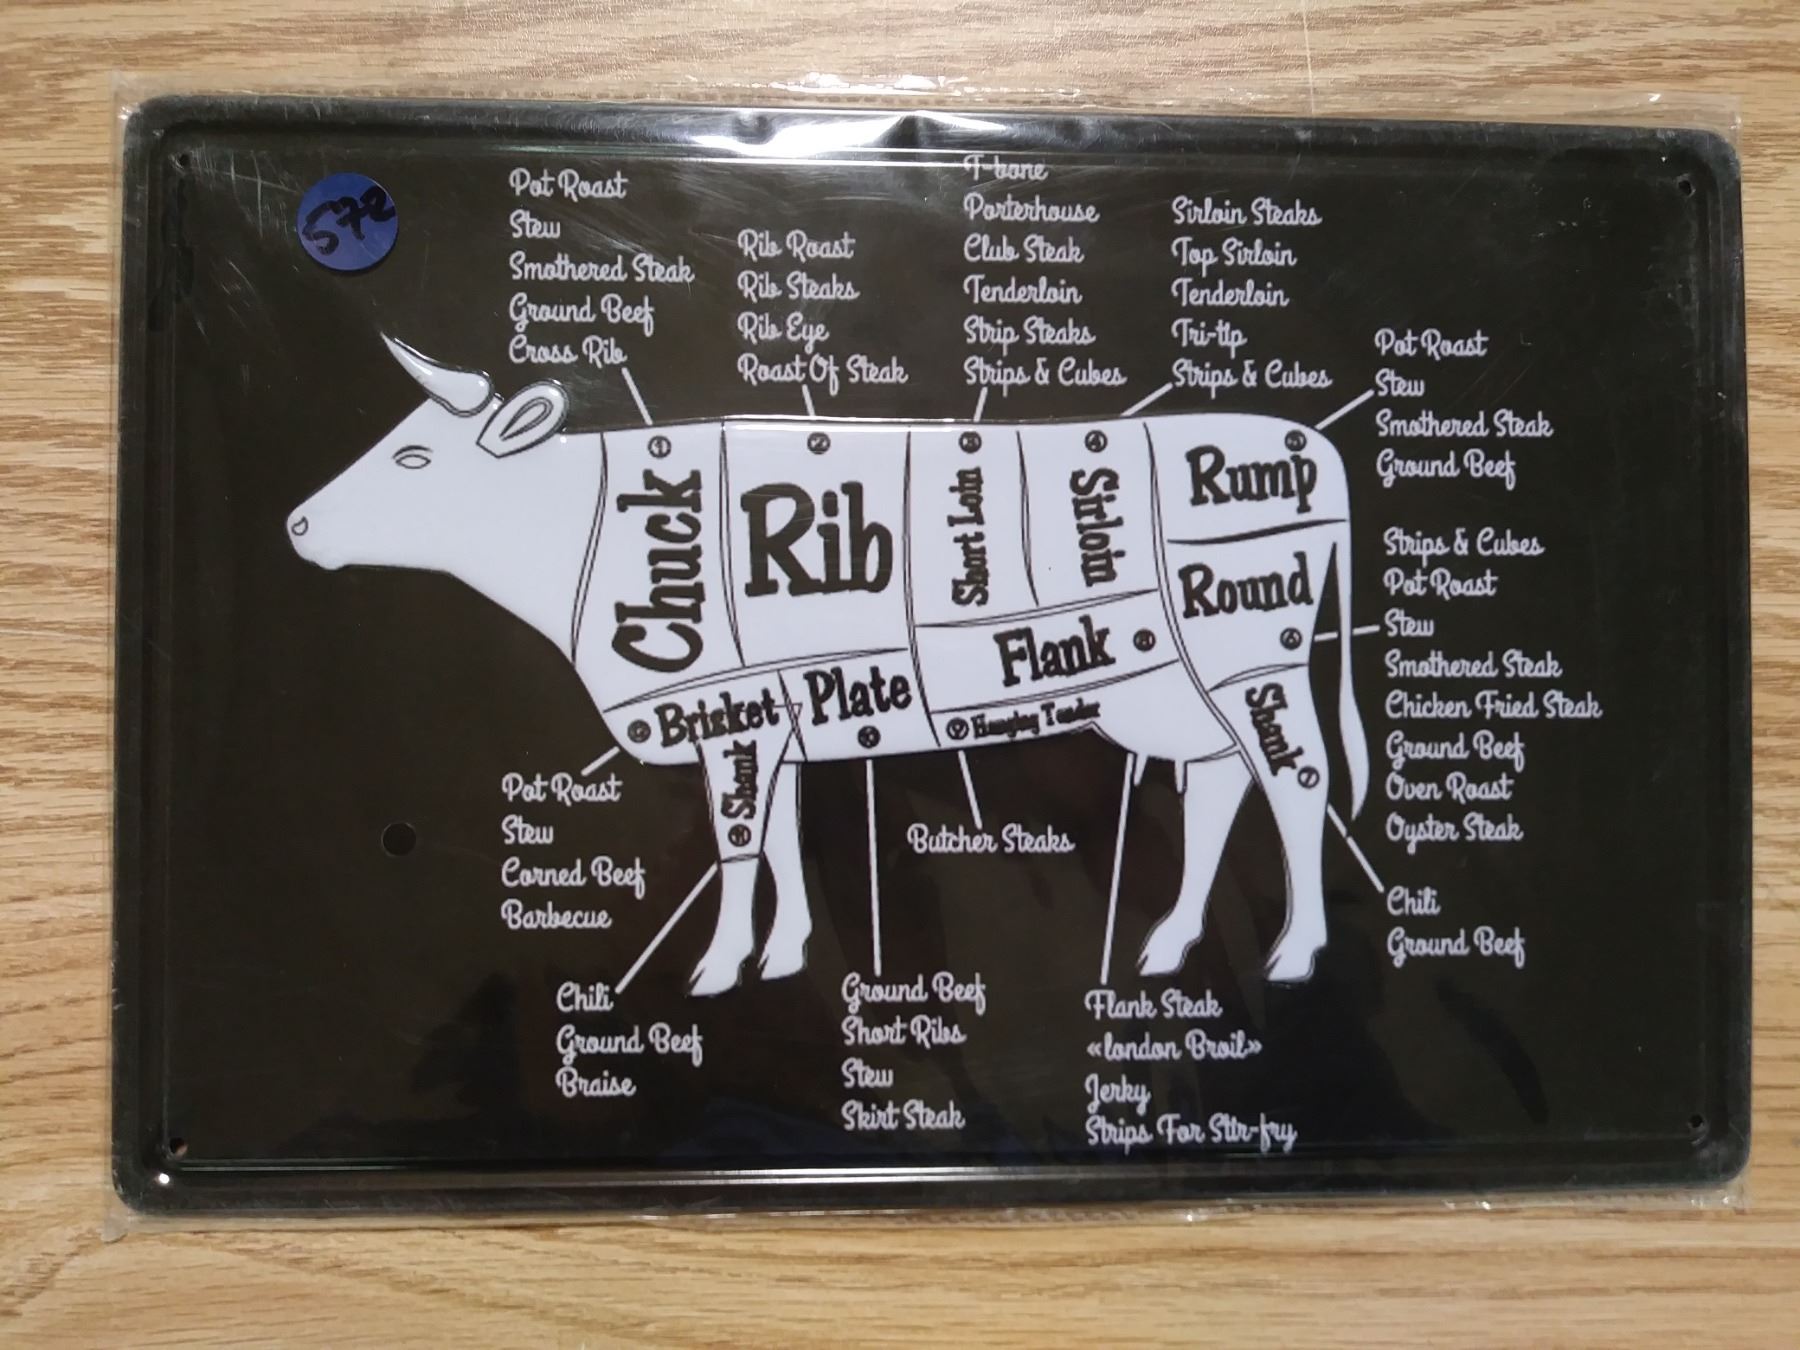 572
Pot Roast
Stew
Smothered Steak
Ground Beef
Cross Rib
Rib Roast
Rib Steaks
Rib Eye
Roast Of Steak
T-bone
Porterhouse
Club Steak
Tenderloin
Strip Steaks
Strips & Cubes
Sirloin Steaks
Top Sirloin
Tenderloin
Tri-tip
Strips & Cubes
Pot Roast
Stew
Smothered Steak
Ground Beef
Strips & Cubes
Pot Roast
Stew
Smothered Steak
Chicken Fried Steak
Ground Beef
Oven Roast
Oyster Steak
Chili
Ground Beef
1
Chuck
2
Rib
3
Short Loin
4
Sirloin
5
Rump
Round
6
Flank
8
Shank
7
Brisket
Plate
Hanging Tender
Shank
Pot Roast
Stew
Corned Beef
Barbecue
Butcher Steaks
Chili
Ground Beef
Braise
Ground Beef
Short Ribs
Stew
Skirt Steak
Flank Steak
«london Broil»
Jerky
Strips For Stir-fry